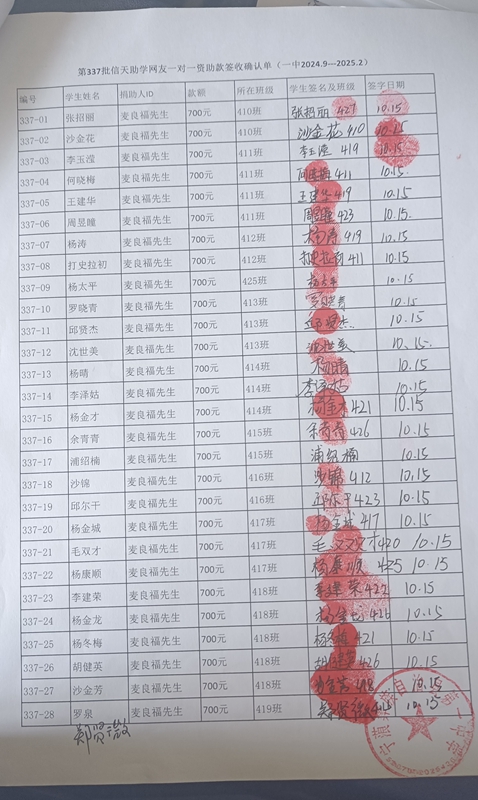 第337批信天助学网友一对一资助款签收确认单（一中2024.9—2025.2）
编号 学生姓名 捐助人ID 款额 所在班级 学生签名及班级 签字日期
337-01 张招丽 麦良福先生 700元 410班 张招丽 427 10.15
337-02 沙金花 麦良福先生 700元 410班 沙金花 410 10.15
337-03 李玉滢 麦良福先生 700元 411班 李玉滢 419 10.15
337-04 何晓梅 麦良福先生 700元 411班 何晓梅 411 10.15
337-05 王建华 麦良福先生 700元 411班 王建华 419 10.15
337-06 周昱曈 麦良福先生 700元 411班 周昱曈 423 10.15.
337-07 杨涛 麦良福先生 700元 412班 杨涛 419 10.15
337-08 打史拉初 麦良福先生 700元 412班 411 10.15
337-09 杨太平 麦良福先生 700元 425班 杨太平 10.15
337-10 罗晓青 麦良福先生 700元 413班 罗晓青 10.15
337-11 邱贤杰 麦良福先生 700元 413班 邱贤杰. 10.15
337-12 沈世英 麦良福先生 700元 413班 沈世英 10.15.
337-13 杨晴 麦良福先生 700元 414班 杨晴 10.15
337-14 李泽姑 麦良福先生 700元 414班 李泽姑 10.15
337-15 杨金才 麦良福先生 700元 414班 杨金才 421 10.15
337-16 余青青 麦良福先生 700元 415班 余青青 426 10.15
337-17 浦绍楠 麦良福先生 700元 415班 浦绍楠 10.15
337-18 沙锦 麦良福先生 700元 416班 沙锦 412 10.15
337-19 邱尔干 麦良福先生 700元 416班 邱尔干 423 10.15
337-20 杨金城 麦良福先生 700元 417班 杨金城 417 10.15
337-21 毛双才 麦良福先生 700元 417班 毛双才 420 10.15
337-22 杨康顺 麦良福先生 700元 417班 杨康顺 425 10.15
337-23 李建荣 麦良福先生 700元 418班 李建荣 422 10.15
337-24 杨金龙 麦良福先生 700元 418班 杨金龙 426 10.15
337-25 杨冬梅 麦良福先生 700元 418班 杨冬梅 421 10.15
337-26 胡健英 麦良福先生 700元 418班 胡健英 426 10.15
337-27 沙金芳 麦良福先生 700元 418班 沙金芳 418 10.15
337-28 罗泉 麦良福先生 700元 419班 10.15
郑贤微